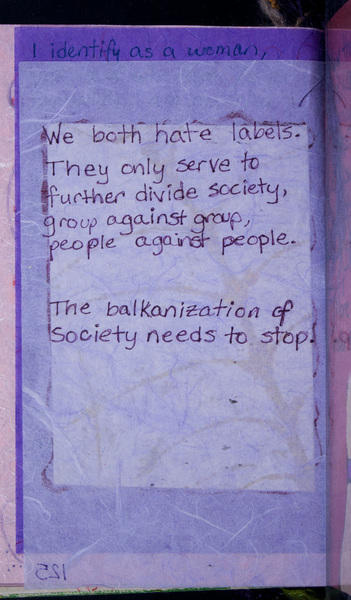 I identify as a woman,
We both hate labels.
They only serve to
further divide society,
group against group,
people against people.
The balkanization of
society needs to stop.
125